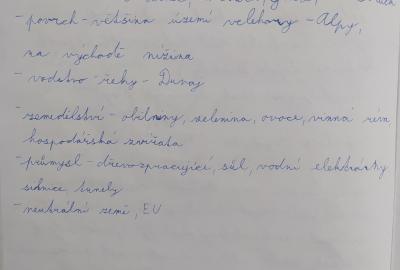 - povrch - většina území velehory - Alpy,
na východě nížina
- vodstvo - řeky - Dunaj
- zemědělství - obilniny, zelenina, ovoce, vinná réva
hospodářská zvířata
- průmysl - dřevozpracující, sůl, vodní elektrárny
silnice tunely
- neutrální země, EU